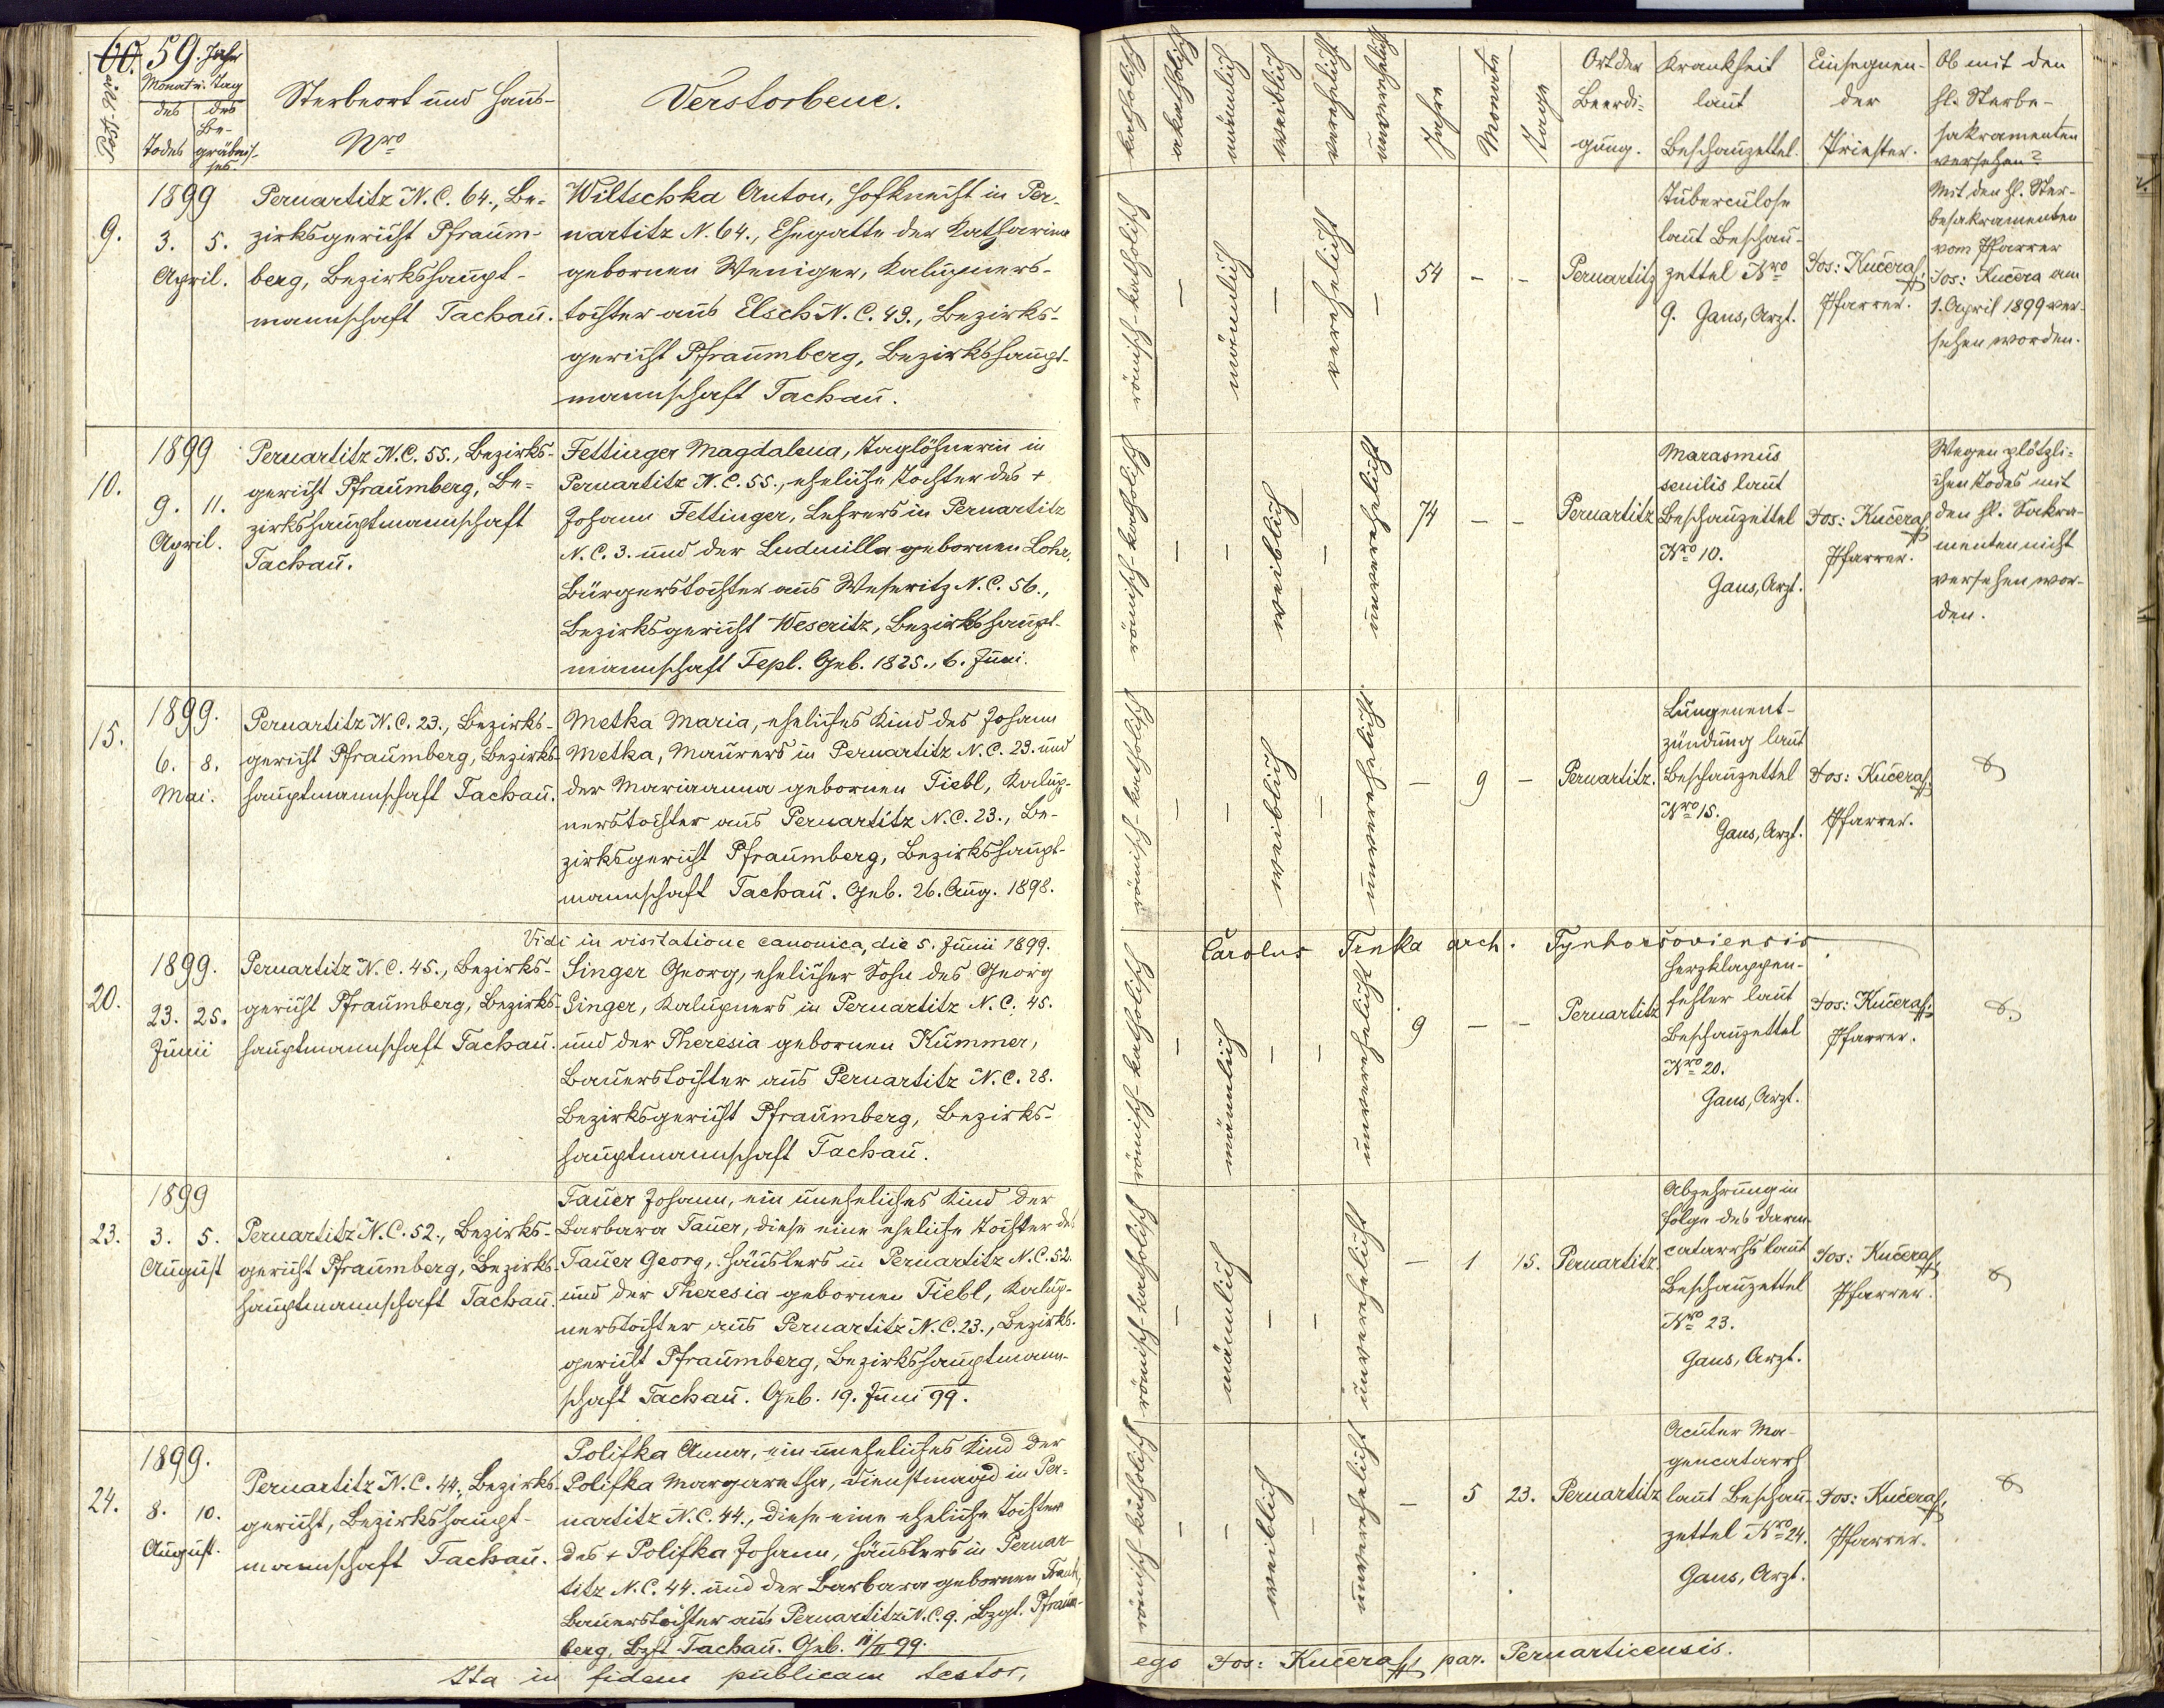 60. 59. Jahr
Post-Nro
Monat u. Tag
des Todes
des Be-
gräbnis-
ses.
Sterbeort und Haus-
Nro
Verstorbene.
katholisch
akatholisch
männlich
weiblich
verehelicht
unverehelicht
Jahre
Monate
Tage
Ort der
Beerdi-
gung.
Krankheit
laut
Beschauzettel.
Einsegnen-
der
Priester.
Ob mit den
hl. Sterbe-
sakramenten
versehen?
9.
1899
3. 5.
April.
Pernartitz N.C. 64., Be-
zirksgericht Pfraum-
berg, Bezirkshaupt-
mannschaft Tachau.
Wiltschka Anton, Hofknecht in Per-
nartitz N. 64., Ehegatte der Katharina
gebornen Weniger, Kalupners-
tochter aus Elsch N.C. 49., Bezirks-
gericht Pfraumberg, Bezirkshaupt-
mannschaft Tachau.
römisch-katholisch
–
männlich
–
verehelicht
–
54 – –
Pernartitz
Tuberculose
laut Beschau-
zettel Nro
9. Gans, Arzt.
Jos: Kučera
Pfarrer.
Mit den hl. Ster-
besakramenten
vom Pfarrer
Jos: Kučera am
1. April 1899 ver-
sehen worden.
10.
1899
9. 11.
April.
Pernartitz N.C. 55., Bezirks-
gericht Pfraumberg, Be-
zirkshauptmannschaft
Tachau.
Fettinger Magdalena, Taglöhnerin in
Pernartitz N.C. 55., eheliche Tochter des +
Johann Fettinger, Lehrers in Pernartitz
N.C. 3. und der Ludmilla gebornen Lohr,
Bürgerstochter aus Weseritz N.C. 56.,
Bezirksgericht Weseritz, Bezirkshaupt-
mannschaft Tepl. Geb. 1825., 6. Juni.
römisch-katholisch
–
–
weiblich
–
unverehelicht
74 – –
Pernartitz
Marasmus
senilis laut
Beschauzettel
Nro 10.
Gans, Arzt.
Jos: Kučera
Pfarrer.
Wegen plötzli-
chen Todes mit
den hl. Sakra-
menten nicht
versehen wor-
den.
15.
1899.
6. 8.
Mai.
Pernartitz N.C. 23., Bezirks-
gericht Pfraumberg, Bezirks-
hauptmannschaft Tachau.
Metka Maria, eheliches Kind des Johann
Metka, Maurers in Pernartitz N.C. 23. und
der Marianna gebornen Tiebl, Kalup-
nerstochter aus Pernartitz N.C. 23., Be-
zirksgericht Pfraumberg, Bezirkshaupt-
mannschaft Tachau. Geb. 26. Aug. 1898.
römisch-katholisch
–
–
weiblich
–
unverehelicht
– 9 –
Pernartitz.
Lungenent-
zündung laut
Beschauzettel
Nro 15.
Gans, Arzt.
Jos: Kučera
Pfarrer.
Vidi in visitatione canonica, die 5. Junii 1899. Carolus Trnka arch. Tynhoršoviensis
20.
1899.
23. 25.
Junii
Pernartitz N.C. 45., Bezirks-
gericht Pfraumberg, Bezirks-
hauptmannschaft Tachau.
Singer Georg, ehelicher Sohn des Georg
Singer, Kalupners in Pernartitz N.C. 45.
und der Theresia gebornen Kummer,
Bauerstochter aus Pernartitz N.C. 28.
Bezirksgericht Pfraumberg, Bezirks-
hauptmannschaft Tachau.
römisch-katholisch
–
männlich
–
–
unverehelicht
9 – –
Pernartitz
Herzklappen-
fehler laut
Beschauzettel
Nro 20.
Gans, Arzt.
Jos: Kučera
Pfarrer.
23.
1899
3. 5.
August
Pernartitz N.C. 52., Bezirks-
gericht Pfraumberg, Bezirks-
hauptmannschaft Tachau.
Tauer Johann, ein uneheliches Kind der
Barbara Tauer, diese eine eheliche Tochter des
Tauer Georg, Häuslers in Pernartitz N.C. 52.
und der Theresia gebornen Tiebl, Kalup-
nerstochter aus Pernartitz N.C. 23., Bezirks-
gericht Pfraumberg, Bezirkshauptmann-
schaft Tachau. Geb. 19. Juni 99.
römisch-katholisch
–
männlich
–
–
unverehelicht
– 1 15.
Pernartitz
Abzehrung in
folge des Darm-
catarrhs laut
Beschauzettel
Nro 23.
Gans, Arzt.
Jos: Kučera
Pfarrer.
24.
1899.
8. 10.
August.
Pernartitz N.C. 44., Bezirks-
gericht, Bezirkshaupt-
mannschaft Tachau.
Polifka Anna, ein uneheliches Kind der
Polifka Margaretha, Dienstmagd in Per-
nartitz N.C. 44., diese eine eheliche Tochter
des + Polifka Johann, Häuslers in Pernar-
titz N.C. 44. und der Barbara gebornen Frank,
Bauerstochter aus Pernartitz N.C. 9., Bzgt. Pfraum-
berg, Bzht Tachau. Geb. 99.
römisch-katholisch
–
–
weiblich
–
unverehelicht
– 5 23.
Pernartitz
Acuter Ma-
gencatarrh
laut Beschau-
zettel Nro 24.
Gans, Arzt.
Jos: Kučera
Pfarrer.
Ita in fidem publicam testor, ego Jos: Kučera par. Pernarticensis.